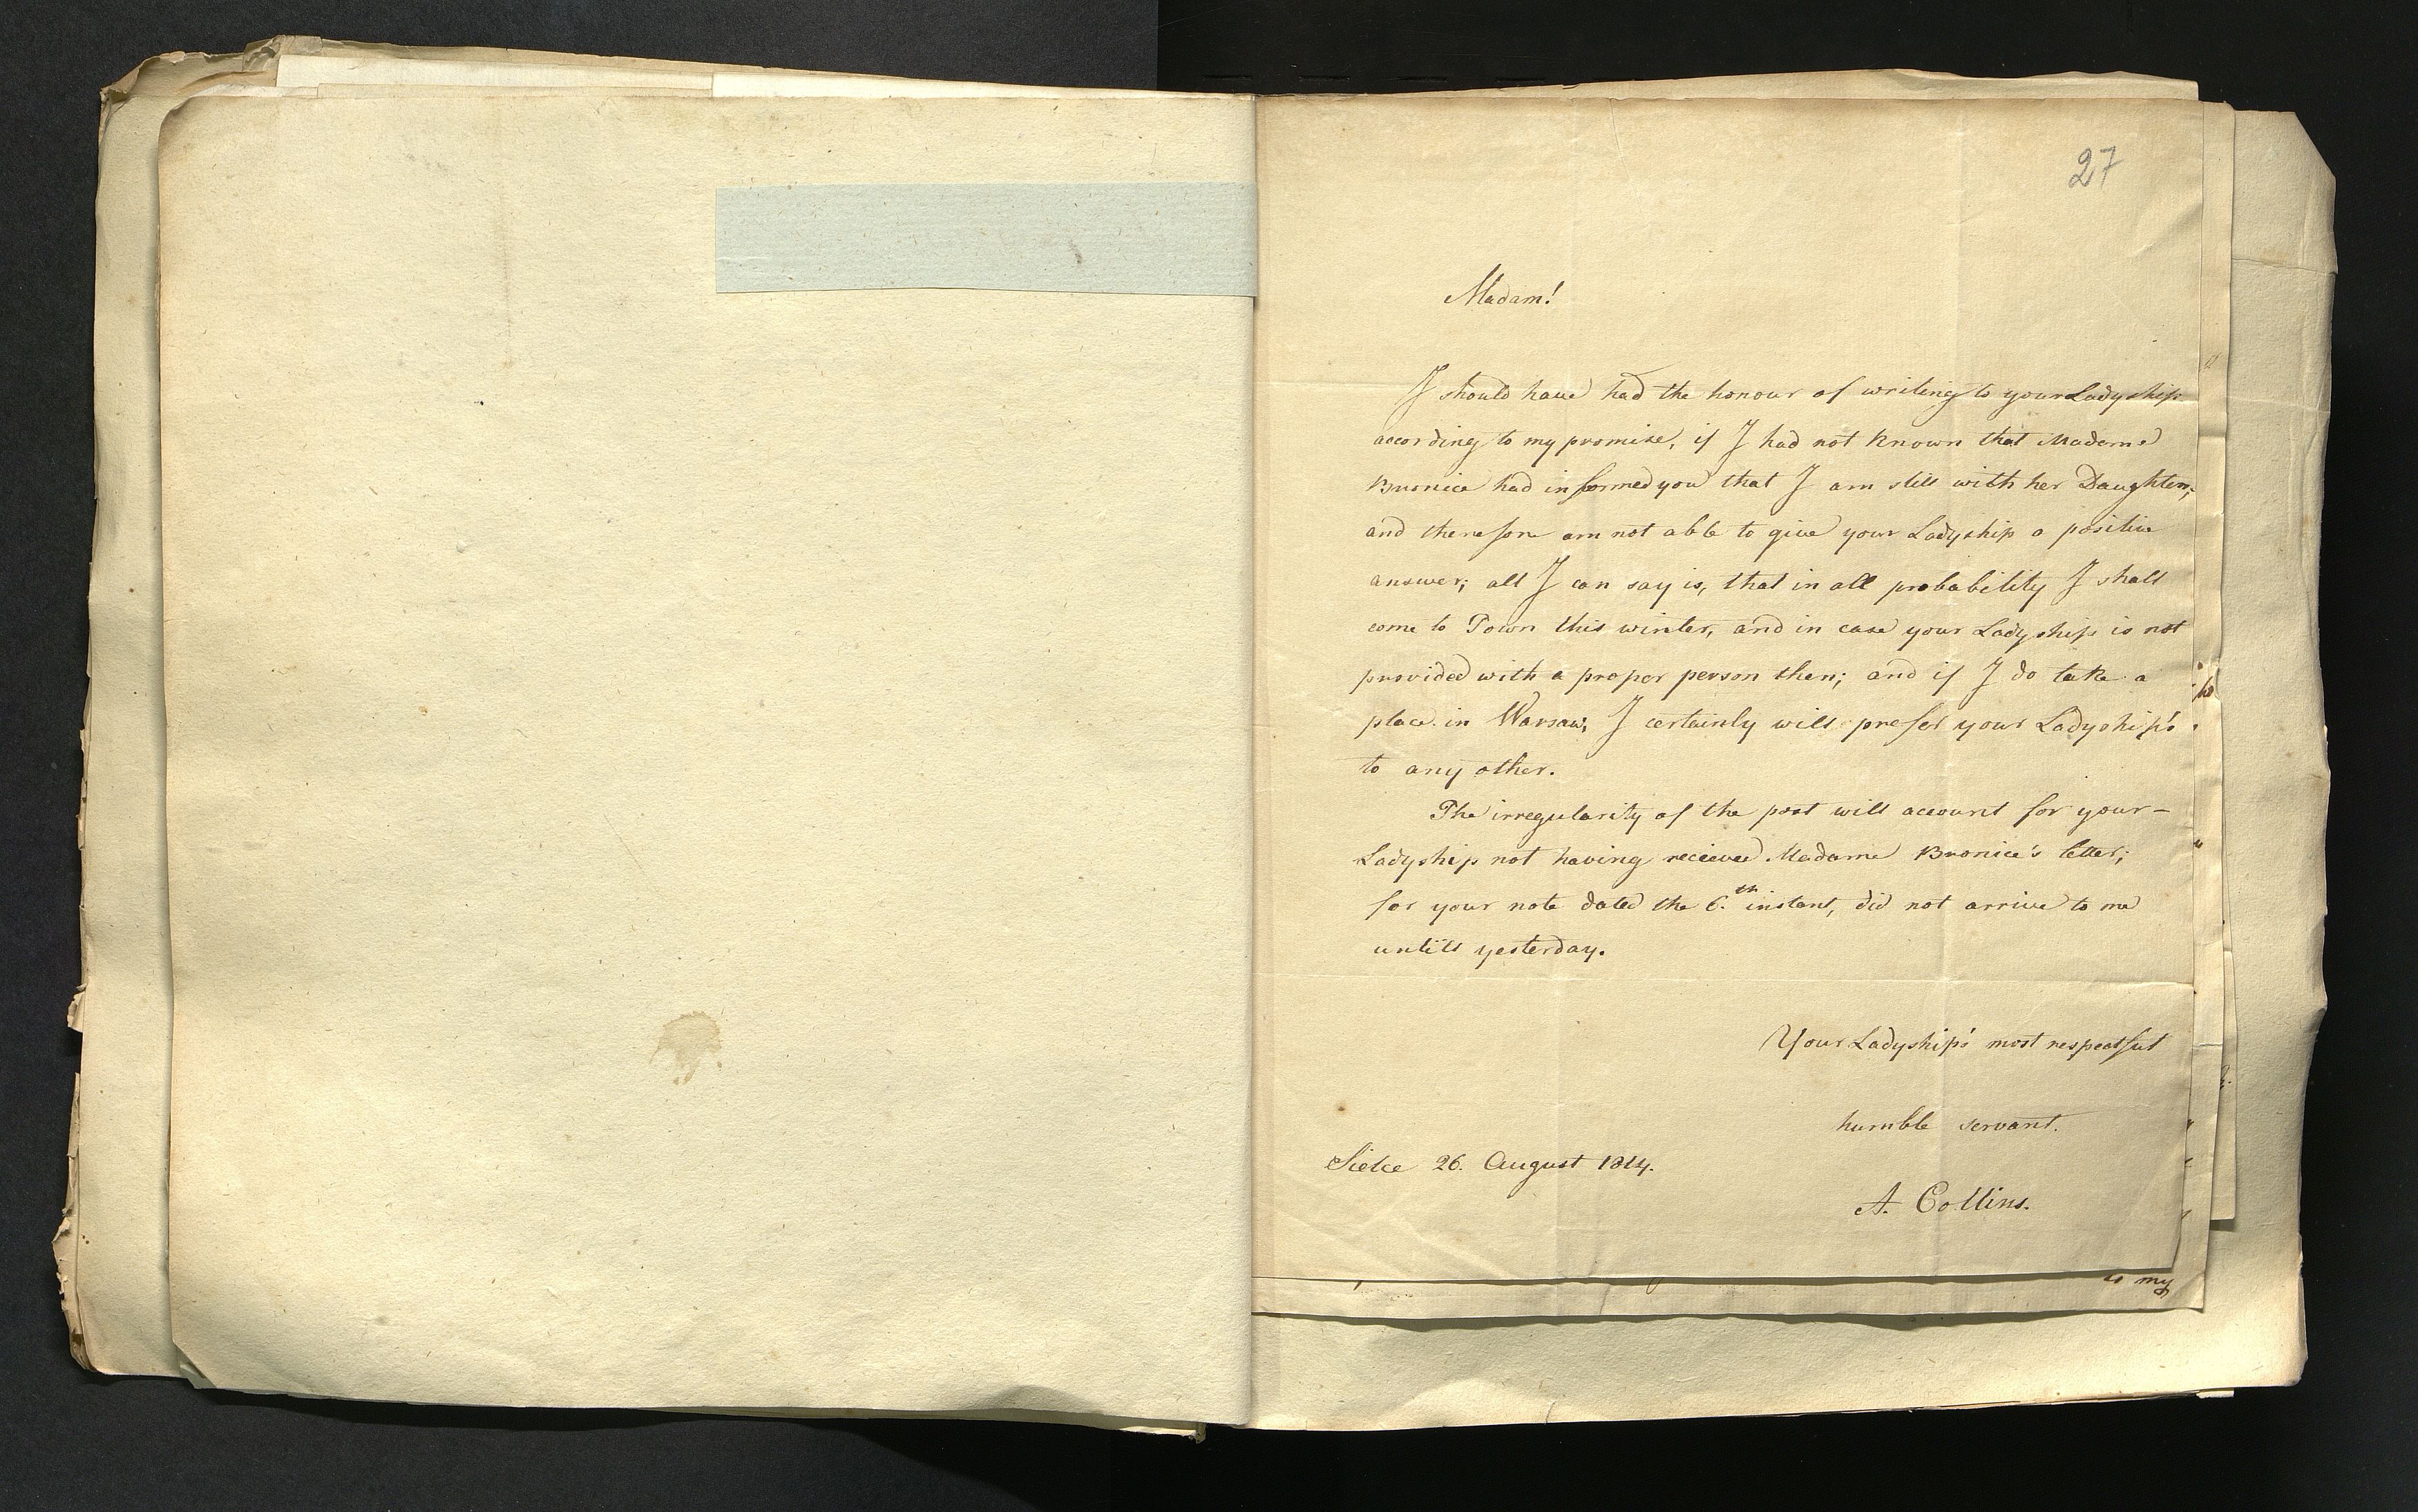 27
Madam!
I should have had the honour of writing to your Ladyship
according to my promise, if I had not known that Madame
Bronice had informed you that I am still with her Daughter,
and therefore am not able to give your Ladyship a positive
answer; all I can say is, that in all probability I shall
come to Town this winter, and in case your Ladyship is not
provided with a proper person then; and if I do take a
place in Warsaw, I certainly will prefer your Ladyship's
to any other.
The irregularity of the post will account for your-
Ladyship not having recieved Madame Bronice's letter;
for your note dated the 6.th instant, did not arrive to me
untill yesterday.
Your Ladyship's most respectful
humble servant.
Sielce 26. August 1814.
A. Collins.
to my